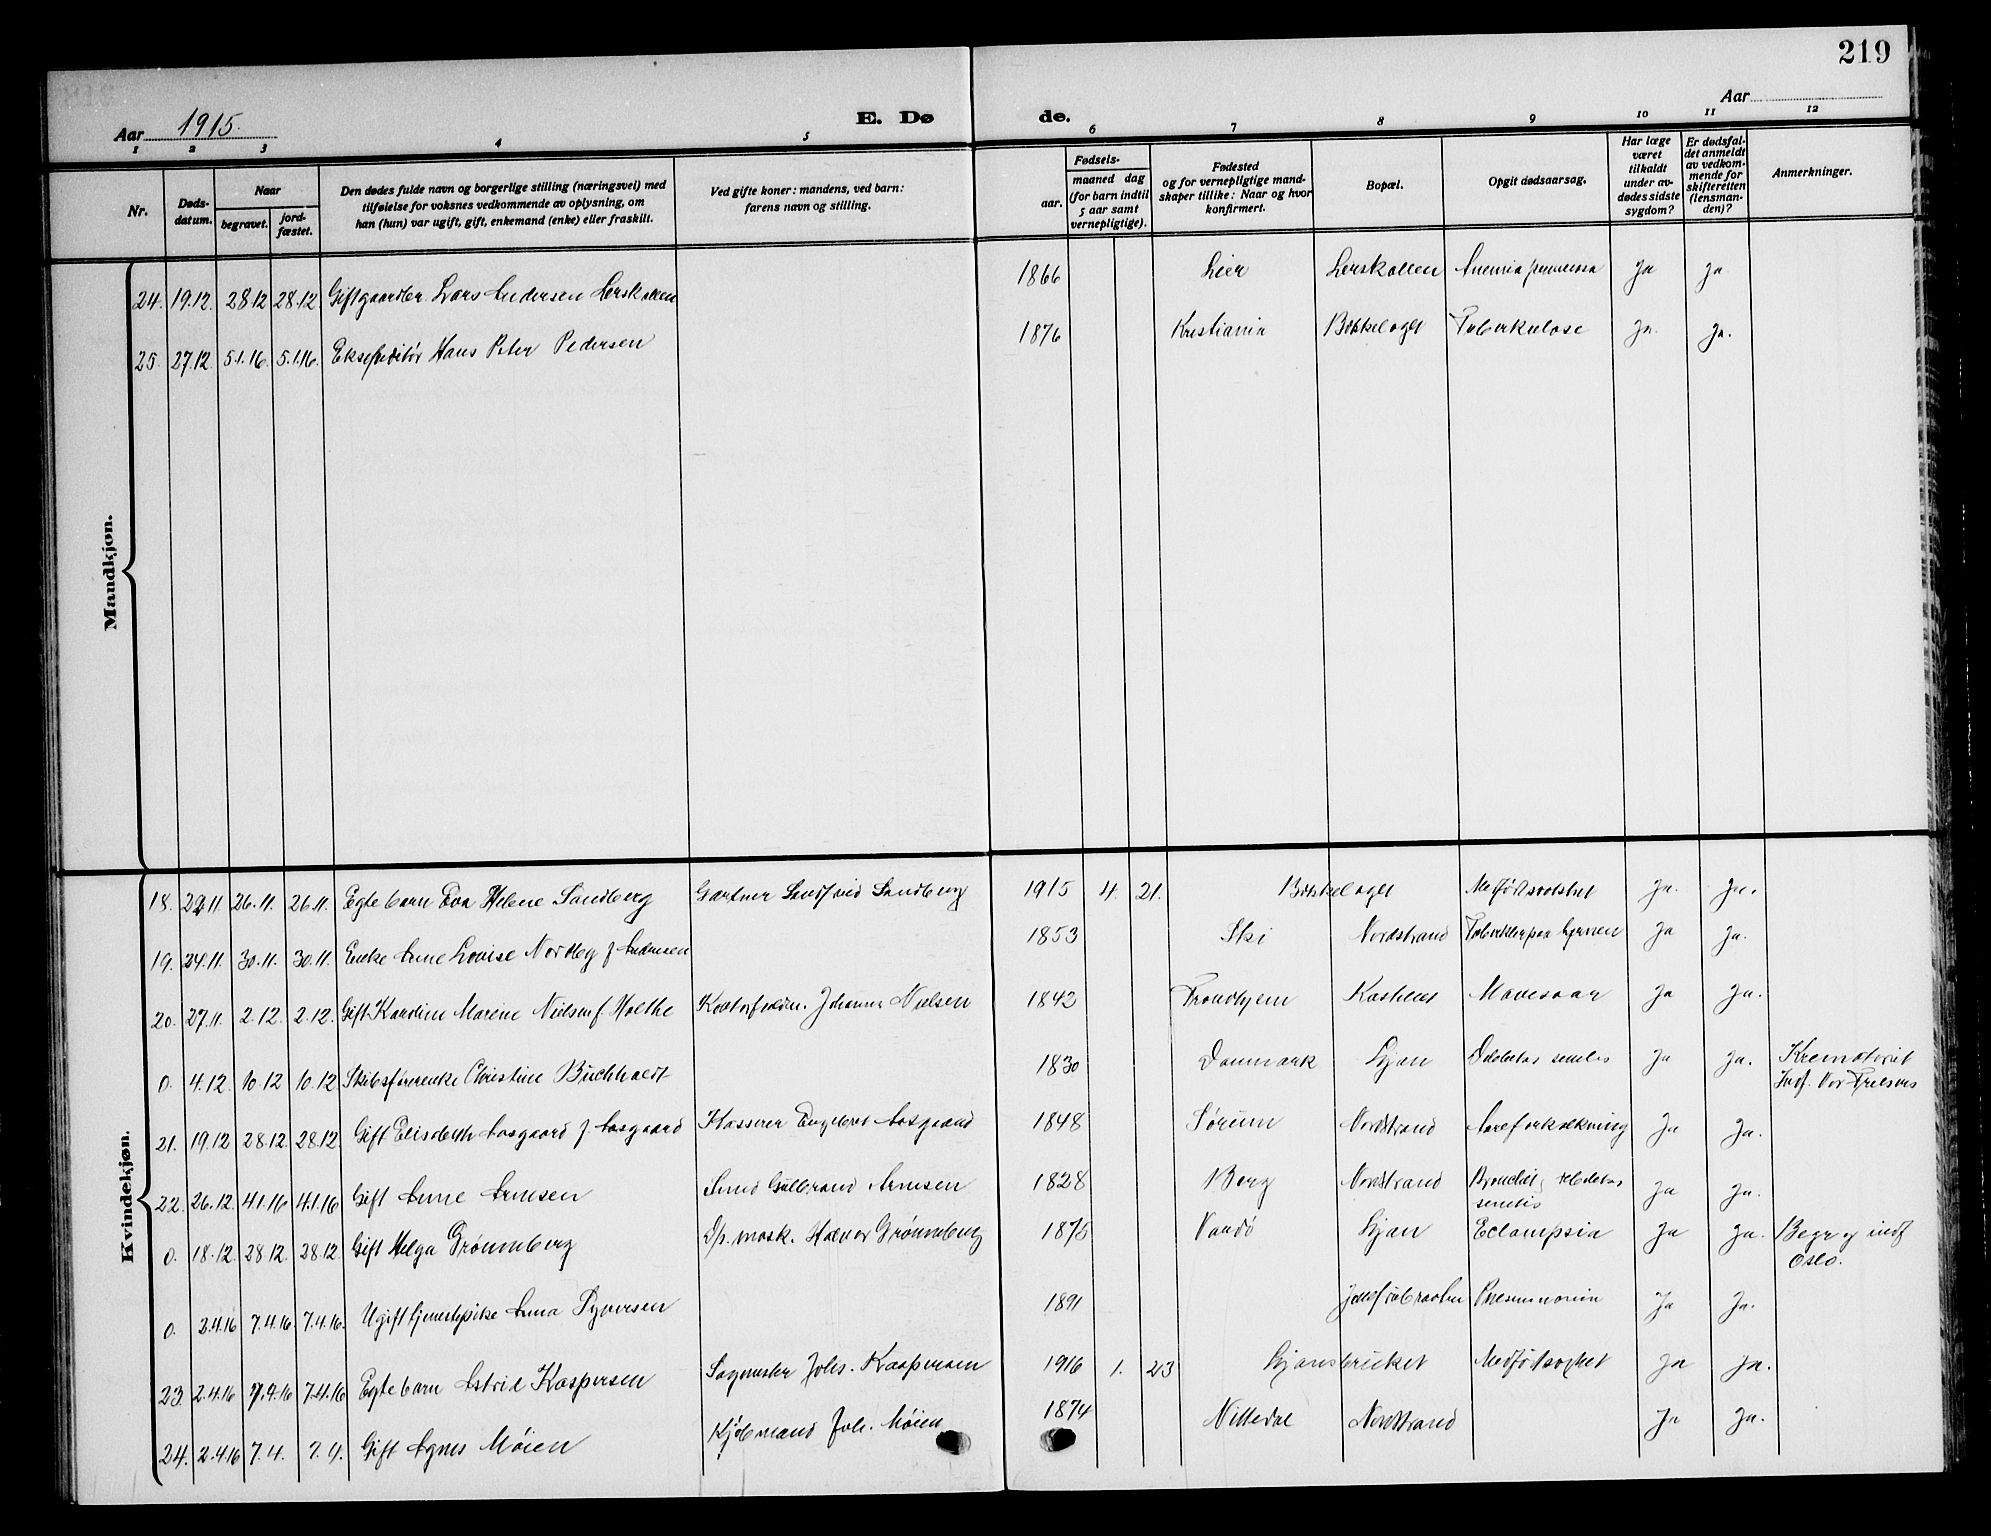 219
Aar 1915.
E. Døde.
Aar
1 2 3 4 5 6 7 8 9 10 11 12
Nr.
Døds-
datum.
Naar
begravet.
jord-
fæstet.
Den dødes fulde navn og borgerlige stilling (næringsvei) med
tilføielse for voksnes vedkommende av oplysning, om
han (hun) var ugift, gift, enkemand (enke) eller fraskilt.
Ved gifte koner: mandens, ved barn:
farens navn og stilling.
Fødsels-
aar.
maaned dag
(for barn indtil
5 aar samt
vernepligtige).
Fødested
og for vernepligtige mand-
skaper tillike: Naar og hvor
konfirmert.
Bopæl.
Opgit dødsaarsag.
Har læge
været
tilkaldt
under av-
dødes sidste
sygdom?
Er dødsfal-
det anmeldt
av vedkom-
mende for
skifteretten
(lensman-
den)?
Anmerkninger.
Mandkjøn.
24. 19.12. 28.12 28.12 Gift gaardbr Lars Andersen Lerskallen 1866 Lier Lerskallen Anemia perniciosa Ja Ja
25. 27.12. 5.1.16. 5.1.16. Ekspeditør Hans Peter Pedersen 1876 Kristiania Bækkelaget Tuberkulose Ja. Ja.
Kvindekjøn.
18. 22.11. 26.11. 26.11. Egte barn Eva Helene Sandberg Gartner Sandberg 1915 4. 21. Bækkelaget Medfødt svakhet Ja. Ja.
19. 24.11. 30.11. 30.11. Enke Anne Lovise Nordleg f Andersen 1853 Ski Nordstrand hjernen Ja Ja.
20. 27.11. 2.12. 2.12. Gift Karoline Marine Nielsen f Holthe Johannes Nielsen 1842 Trondhjem Kastellet Mavesaar Ja Ja.
0. 4.12. 10.12 10.12 Skibsførerenke Christine Buchholdt 1830 Danmark Ljan Debilitas senilis Ja Ja. Krematoriet
Indf. Vor Frelsers
21. 19.12 28.12. 28.12. Gift Elisabeth Aasgaard f. Aasgaard Kasserer Engebret Aasgaard 1848 Sørum Nordstrand Aareforkalkning Ja Ja.
22. 26.12. 4.1.16 4.1.16 Gift Anne Arnesen Smed Gulbrand Arnesen 1828 Berg Nordstrand debilitas
senilis Ja Ja.
0. 18.12. 28.12. 28.12. Gift Helga Grønneberg Halvor Grønneberg 1875 Ljan Eclampsia Ja Ja. Begr og indf
Oslo.
0. 2.4.16 7.4.16. 7.4.16. Ugift tjenestepike Anna Syversen 1891 Pneumonia Ja Ja.
23. 2.4.16 7.4.16 7.4.16 Egte barn Astrid Kaspersen Sagmester Johs. Kaspersen 1916 1. 23 Ljansbruket Medfødt svakhet Ja Ja.
24. 2.4.16 7.4. 7.4. Gift Agnes Møien Kjøbmand Joh. Møien 1874 Nittedal Nordstrand Ja Ja.